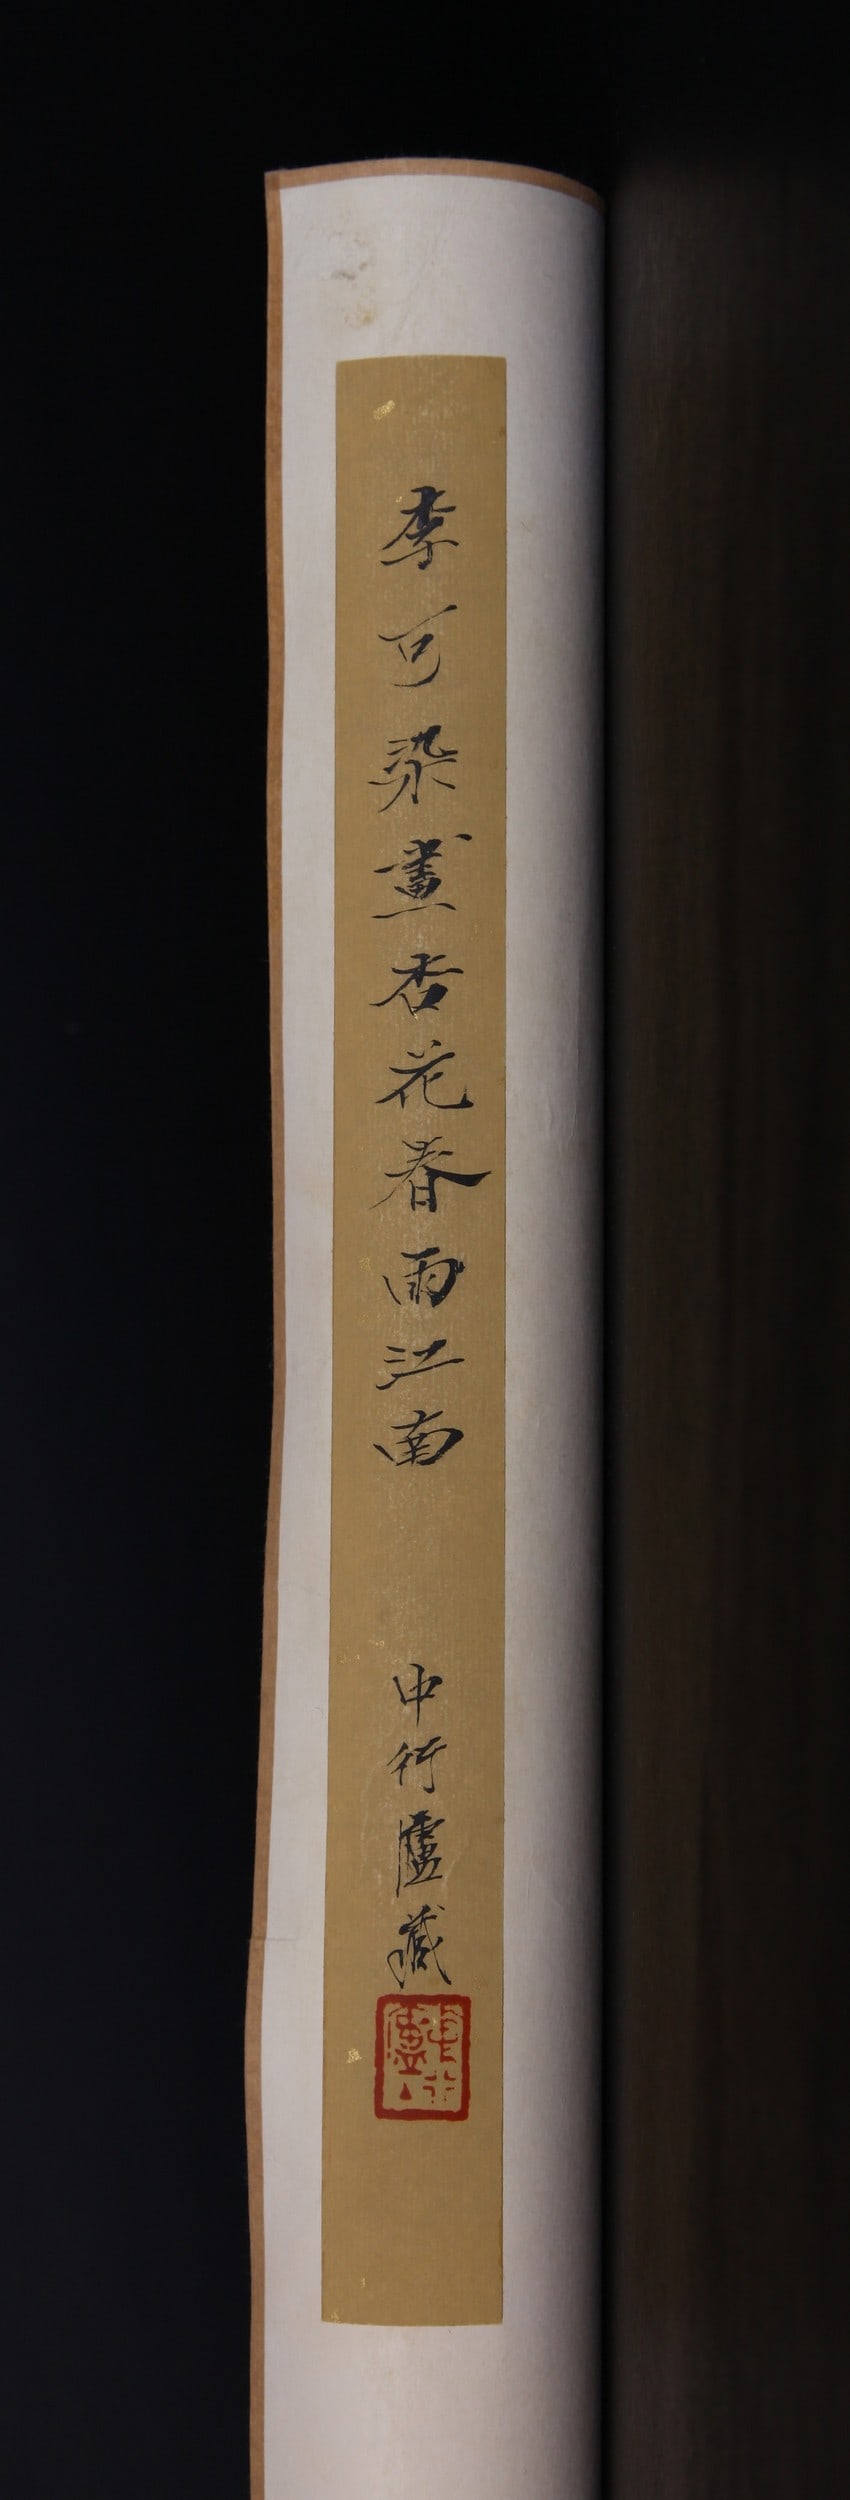 李可染畫杏花春雨江南
中行廬藏